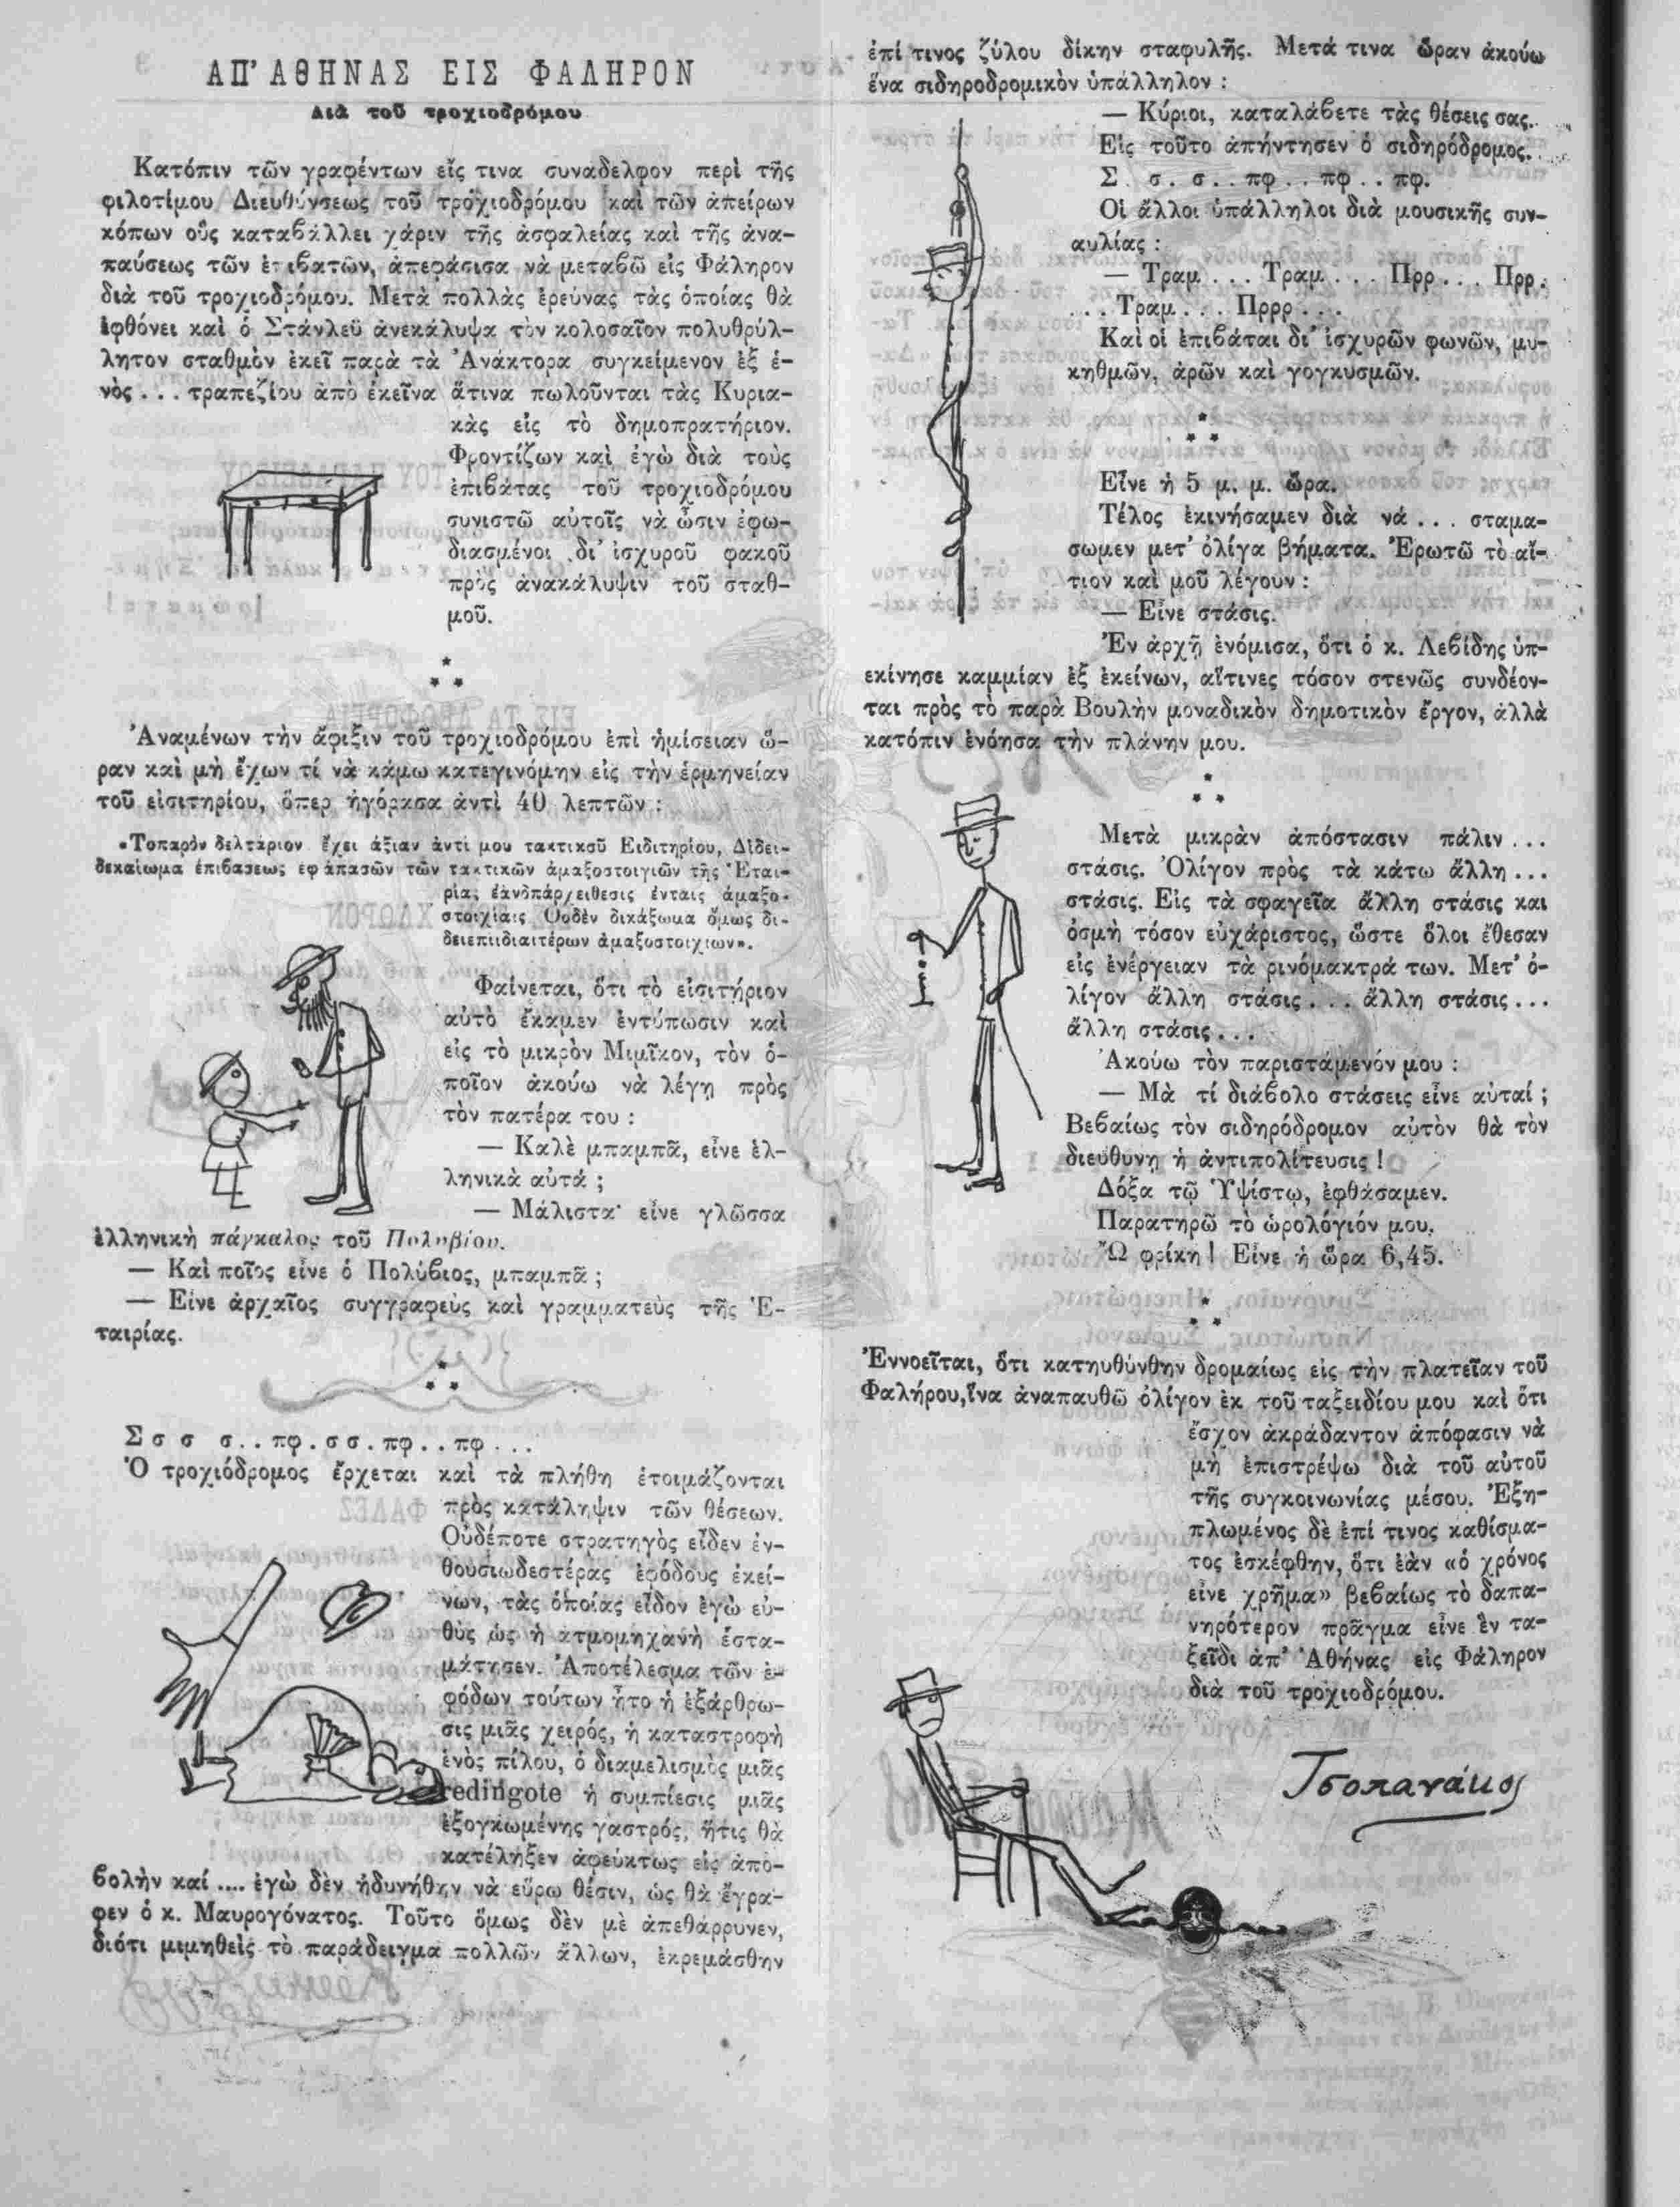 ΑΠ' ΑΘΗΝΑΣ ΕΙΣ ΦΑΛΗΡΟΝ
Διὰ τοῦ τροχιοδρόμου
Κατόπιν τῶν γραφέντων εἴς τινα συναδελφον περὶ τῆς
φιλοτίμου Διευθύνσεως τοῦ τροχιοδρόμου καὶ τῶν ἀπείρων
κόπων οὓς καταβάλλει χάριν τῆς ἀσφαλείας καὶ τῆς ἀνα-
παύσεως τῶν ἐπιβατῶν, ἀπεφάσισα νὰ μεταβῶ εἰς Φάληρον
διὰ τοῦ τροχιοδρόμου. Μετὰ πολλὰς ἐρεύνας τὰς ὁποίας θὰ
ἐφθόνει καὶ ὁ Στάνλεϋ ἀνεκάλυψα τὸν κολοσαῖον πολυθρύλ-
λητον σταθμὸν ἐκεῖ παρὰ τὰ Ἀνάκτορα συγκείμενον ἐξ ἑ-
νὸς . . . τραπεζίου ἀπὸ ἐκεῖνα ἅτινα πωλοῦνται τὰς Κυρια-
κὰς εἰς τὸ δημοπρατήριον.
Φροντίζων καὶ ἐγὼ διὰ τοὺς
ἐπιβάτας τοῦ τροχιοδρόμου
συνιστῶ αὐτοῖς νὰ ὦσιν ἐφω-
διασμένοι δι' ἰσχυροῦ φακοῦ
πρὸς ἀνακάλυψιν τοῦ σταθ-
μοῦ.
* * *
Ἀναμένων τὴν ἄφιξιν τοῦ τροχιοδρόμου ἐπὶ ἡμίσειαν ὥ-
ραν καὶ μὴ ἔχων τί νὰ κάμω κατεγινόμην εἰς τὴν ἑρμηνείαν
τοῦ εἰσιτηρίου, ὅπερ ἠγόρασα ἀντὶ 40 λεπτῶν :
«Τοπαρὸν δελτάριον ἔχει ἀξιαν ἀντί μου τακτικοῦ Ειδιτηρίου, Δίδει-
δεκαίωμα ἐπιβασεως εφ ἁπασῶν τῶν τακτικῶν ἁμαξοστοιγιῶν τῆς Ἑται-
ρίας ἐὰνὑπάρχειθεσις ἐνταις ἁμαξο-
στοιχίαις Οὐδὲν δικάξωμα ὅμως δι-
δειεπιιδιαιτέρων ἁμαξοστοιχιων».
Φαίνεται, ὅτι τὸ εἰσιτήριον
αὐτὸ ἔκαμεν ἐντύπωσιν καὶ
εἰς τὸ μικρὸν Μιμῖκον, τὸν ὁ-
ποῖον ἀκούω νὰ λέγῃ πρὸς
τὸν πατέρα του :
— Καλὲ μπαμπᾶ, εἶνε ἑλ-
ληνικὰ αὐτά ;
— Μάλιστα· εἶνε γλῶσσα
ἑλληνικὴ πάγκαλος τοῦ Πολυβίου.
— Καὶ ποῖος εἶνε ὁ Πολύβιος, μπαμπᾶ ;
— Εἶνε ἀρχαῖος συγγραφεὺς καὶ γραμματεὺς τῆς Ἑ-
ταιρίας.
* * *
Σ σ σ σ . . πφ . σ σ . πφ . . πφ . . .
Ὁ τροχιόδρομος ἔρχεται καὶ τὰ πλήθη ἑτοιμάζονται
πρὸς κατάληψιν τῶν θέσεων.
Οὐδέποτε στρατηγὸς εἶδεν ἐν-
θουσιωδεστέρας ἐφόδους ἐκεί-
νων, τὰς ὁποίας εἶδον ἐγὼ εὐ-
θὺς ὡς ἡ ἀτμομηχανὴ ἐστα-
μάτησεν. Ἀποτέλεσμα τῶν ἐ-
φόδων τούτων ἦτο ἡ ἐξάρθρω-
σις μιᾶς χειρός, ἡ καταστροφὴ
ἑνὸς πίλου, ὁ διαμελισμὸς μιᾶς
redingote ἡ συμπίεσις μιᾶς
ἐξογκωμένης γαστρός, ἥτις θὰ
κατέληξεν ἀφεύκτως εἰς ἀπο-
βολὴν καί .... ἐγὼ δὲν ἠδυνήθην νὰ εὕρω θέσιν, ὡς θὰ ἔγρα-
φεν ὁ κ. Μαυρογόνατος. Τοῦτο ὅμως δὲν μὲ ἀπεθάρρυνεν,
διότι μιμηθεὶς τὸ παράδειγμα πολλῶν ἄλλων, ἐκρεμάσθην
ἐπί τινος ξύλου δίκην σταφυλῆς. Μετά τινα ὥραν ἀκούω
ἕνα σιδηροδρομικὸν ὑπάλληλον :
— Κύριοι, καταλάβετε τὰς θέσεις σας.
Εἰς τοῦτο ἀπήντησεν ὁ σιδηρόδρομος.
Σ . σ . σ . . πφ . . πφ . . πφ.
Οἱ ἄλλοι ὑπάλληλοι διὰ μουσικῆς συν-
αυλίας :
— Τραμ . . . Τραμ . . . Πρρ . . . Πρρ .
. . . Τραμ . . . Πρρρ . . .
Καὶ οἱ ἐπιβάται δι' ἰσχυρῶν φωνῶν, μυ-
κηθμῶν, ἀρῶν καὶ γογκυσμῶν.
* * *
Εἶνε ἡ 5 μ. μ. ὥρα.
Τέλος ἐκινήσαμεν διὰ νά . . . σταμα-
σωμεν μετ' ὀλίγα βήματα. Ἐρωτῶ τὸ αἴ-
τιον καὶ μοῦ λέγουν :
— Εἶνε στάσις.
Ἐν ἀρχῇ ἐνόμισα, ὅτι ὁ κ. Λεβίδης ὑπ-
εκίνησε καμμίαν ἐξ ἐκείνων, αἵτινες τόσον στενῶς συνδέον-
ται πρὸς τὸ παρὰ Βουλὴν μοναδικὸν δημοτικὸν ἔργον, ἀλλὰ
κατόπιν ἐνόησα τὴν πλάνην μου.
* * *
Μετὰ μικρὰν ἀπόστασιν πάλιν . . .
στάσις. Ὀλίγον πρὸς τὰ κάτω ἄλλη . . .
στάσις. Εἰς τὰ σφαγεῖα ἄλλη στάσις και
ὀσμὴ τόσον εὐχάριστος, ὥστε ὅλοι ἔθεσαν
εἰς ἐνέργειαν τὰ ρινόμακτρά των. Μετ' ὀ-
λίγον ἄλλη στάσις . . . ἄλλη στάσις . . .
ἄλλη στάσις . . .
Ἀκούω τὸν παριστάμενόν μου :
— Μὰ τί διάβολο στάσεις εἶνε αὐταί ;
Βεβαίως τὸν σιδηρόδρομον αὐτὸν θὰ τὸν
διευθύνῃ ἡ ἀντιπολίτευσις !
Δόξα τῷ Ὑψίστῳ, ἐφθάσαμεν.
Παρατηρῶ τὸ ὡρολόγιόν μου.
Ὢ φρίκη ! Εἶνε ἡ ὥρα 6,45.
* * *
Ἐννοεῖται, ὅτι κατηυθύνθην δρομαίως εἰς τὴν πλατεῖαν τοῦ
Φαλήρου, ἵνα ἀναπαυθῶ ὀλίγον ἐκ τοῦ ταξειδίου μου καὶ ὅτι
ἔσχον ἀκράδαντον ἀπόφασιν νὰ
μὴ ἐπιστρέψω διὰ τοῦ αὐτοῦ
τῆς συγκοινωνίας μέσου. Ἐξη-
πλωμένος δὲ ἐπί τινος καθίσμα-
τος ἐσκέφθην, ὅτι ἐὰν «ὁ χρόνος
εἶνε χρῆμα» βεβαίως τὸ δαπα-
νηρότερον πρᾶγμα εἶνε ἓν τα-
ξεῖδι ἀπ' Ἀθήνας εἰς Φάληρον
διὰ τοῦ τροχιοδρόμου.
Τσοπανάκος